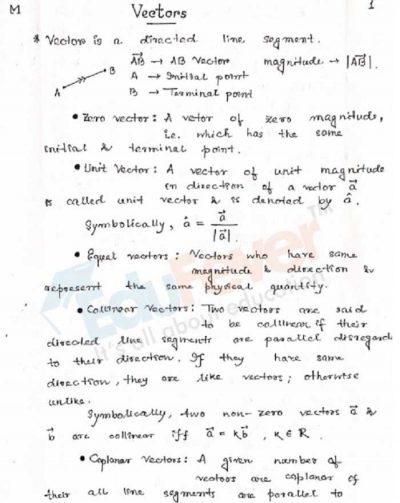 M Vectors 1
* Vector is a directed line segment.
A B AB → AB Vector magnitude → |AB|.
A → Initial point
B → Terminal point
• Zero vector : A vetor of zero magnitude,
i.e. which has the same
initial & terminal point.
• Unit Vector : A vector of unit magnitude
in direction of a vector a⃗
is called unit vector & is denoted by â.
Symbolically, â = a⃗ / |a⃗|.
• Equal vectors : Vectors who have same
magnitude & direction &
represent the same physical quantity.
• Collinear Vectors : Two vectors are said
to be collinear if their
directed line segments are parallel disregard
to their direction. If they have same
direction, they are like vectors; otherwise
unlike.
Symbolically, two non-zero vectors a⃗ &
b⃗ are collinear iff a⃗ = kb⃗, k ∈ R.
• Coplanar Vectors : A given number of
vectors are coplanar if
their all line segments are parallel to
EduRever™
It's all about education